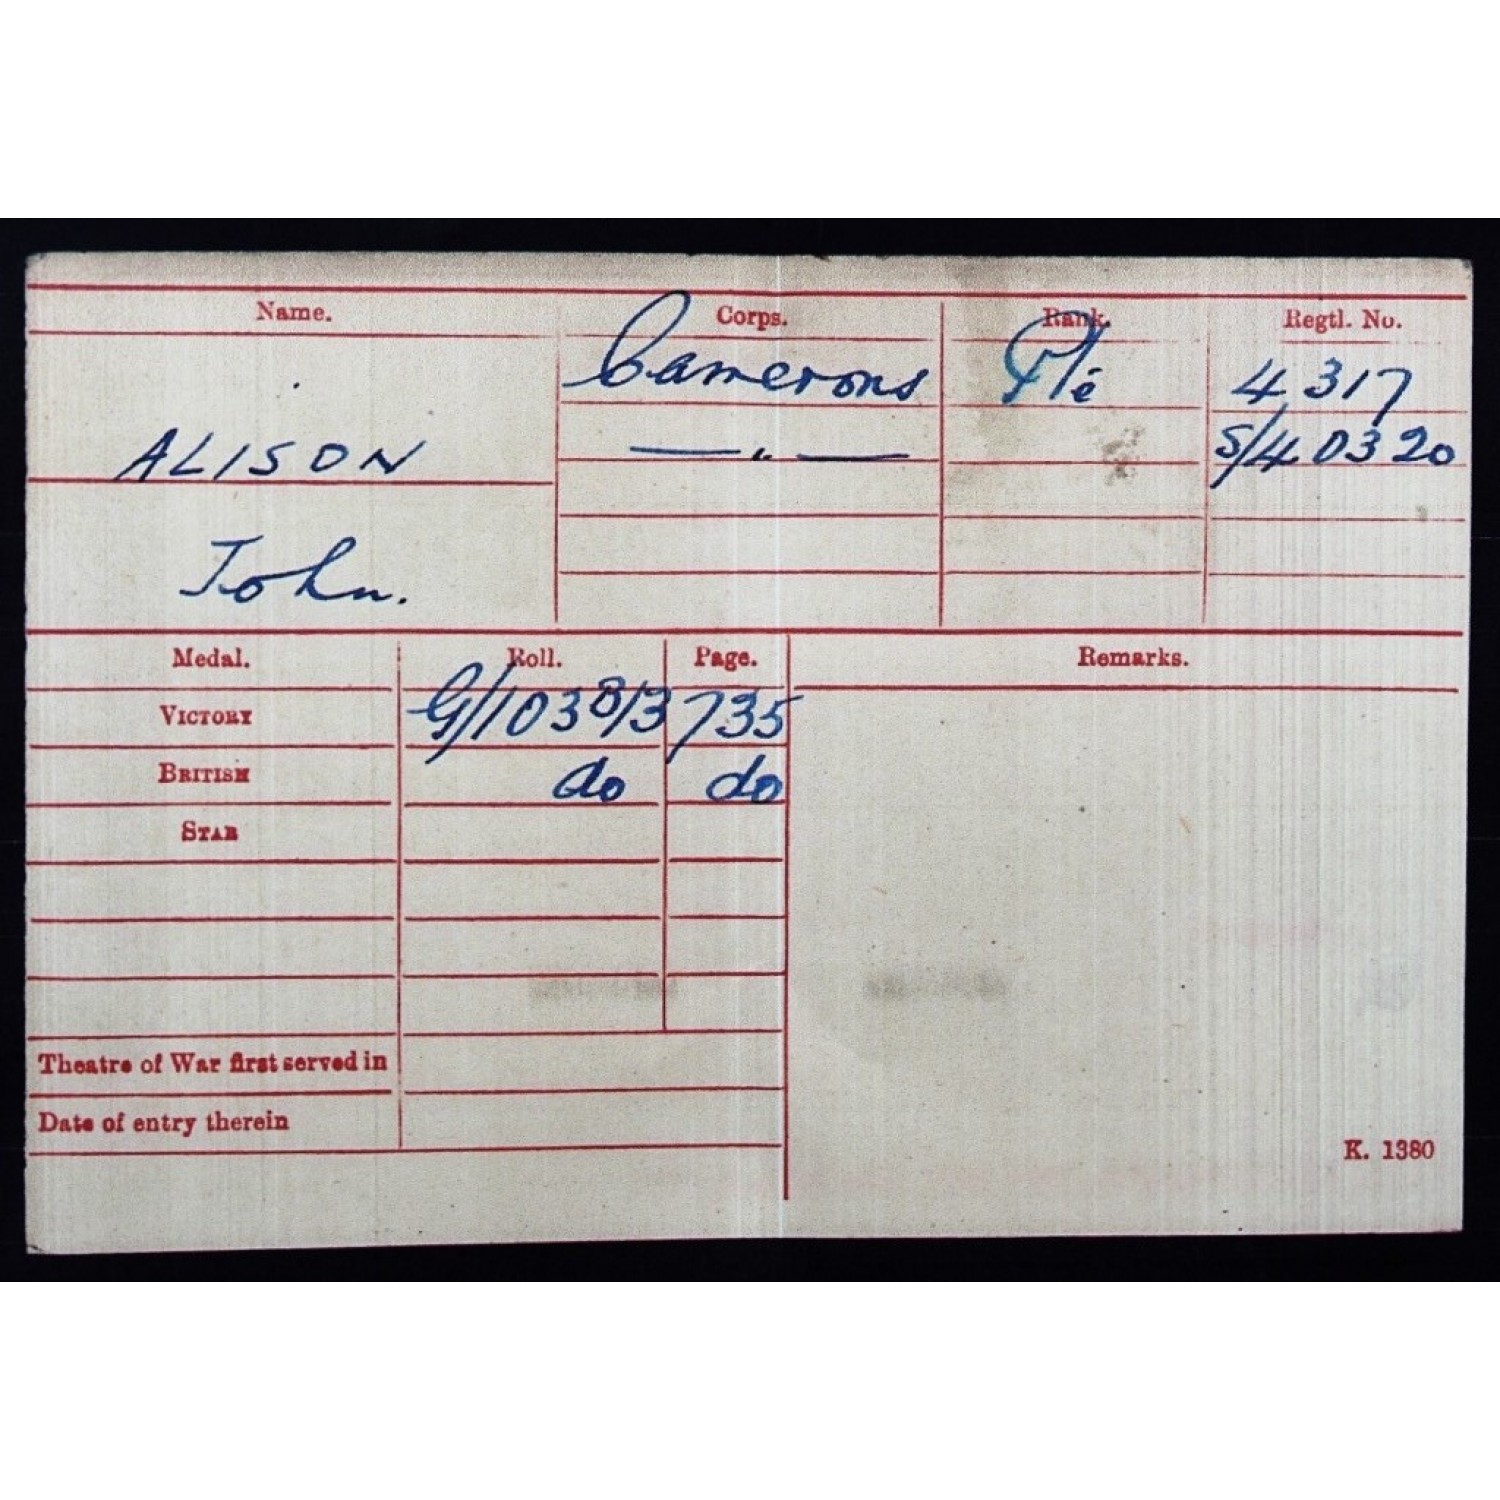 Name. Corps. Rank. Regtl. No.
Camerons Pte 4317
ALISON —〃— S/40320
John.
Medal. Roll. Page. Remarks.
VICTORY G/103B/3 735
BRITISH do do
STAR
Theatre of War first served in
Date of entry therein
K. 1380